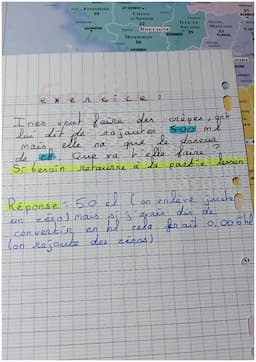 BRETAGNE
exercice :
Ines veut faire des crêpes, ont
lui dit de rajouter 500 ml
mais elle na que le doseur
de cl. Que va t'elle faire ?
Si besoin retourne à la partie lesson
Réponse : 50 cl (on enlève juste
un zéro) mais si j'avais dis de
convertir en hl cela ferait 0,005hl
(on rajoute des zéros)